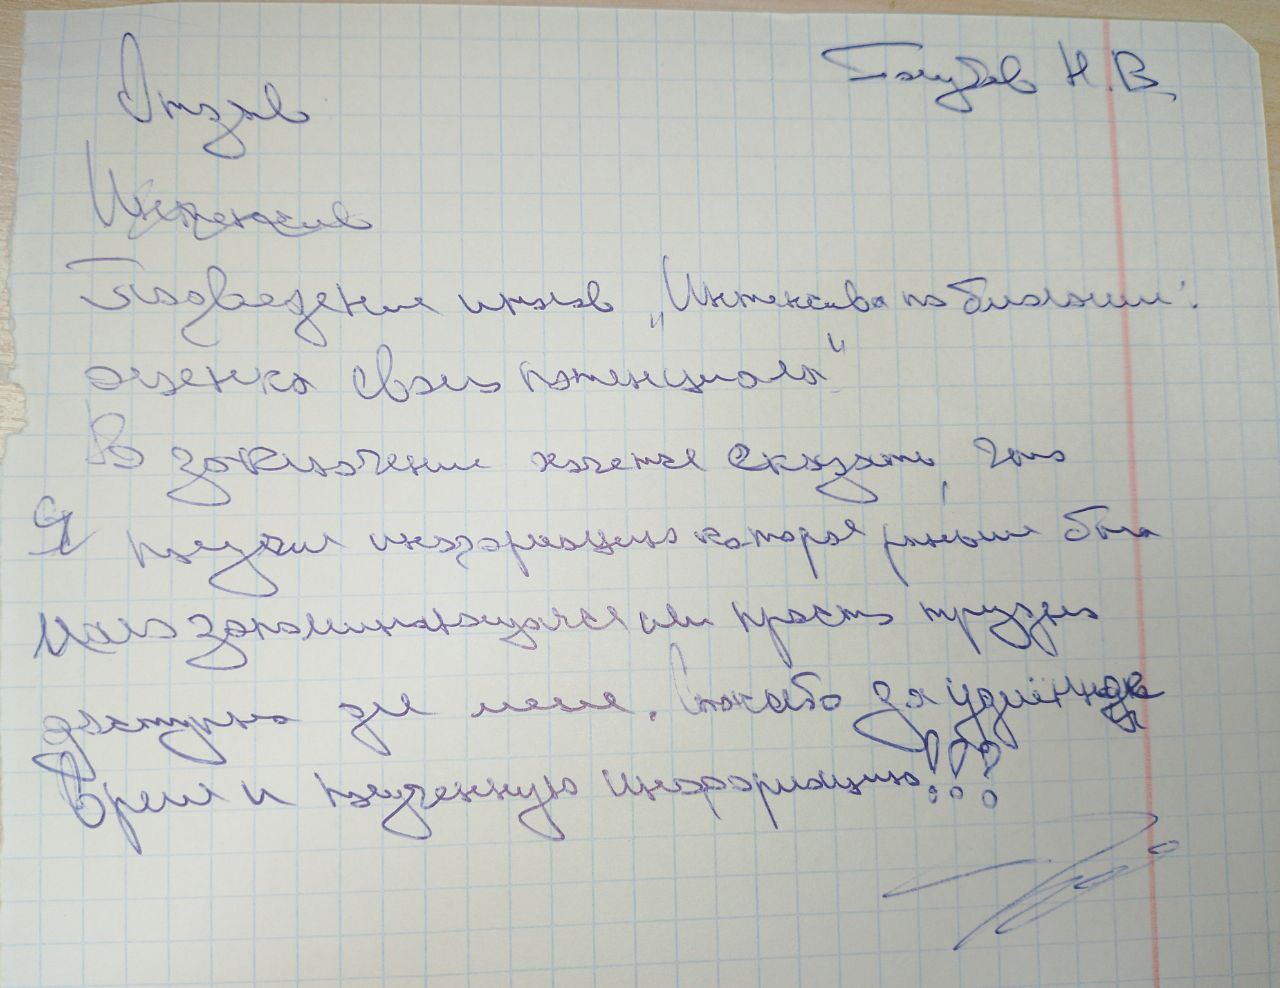 Голубев Н.В.
Отзыв
Интенсив
Подведение итогов „Интенсива по биологии:
оценка своего потенциала"
В заключение хочется сказать, что
Я получил информацию которая раньше была
мало запоминающаяся или просто трудно
доступна для меня. Спасибо за уделённое
Время и полученную информацию!!!